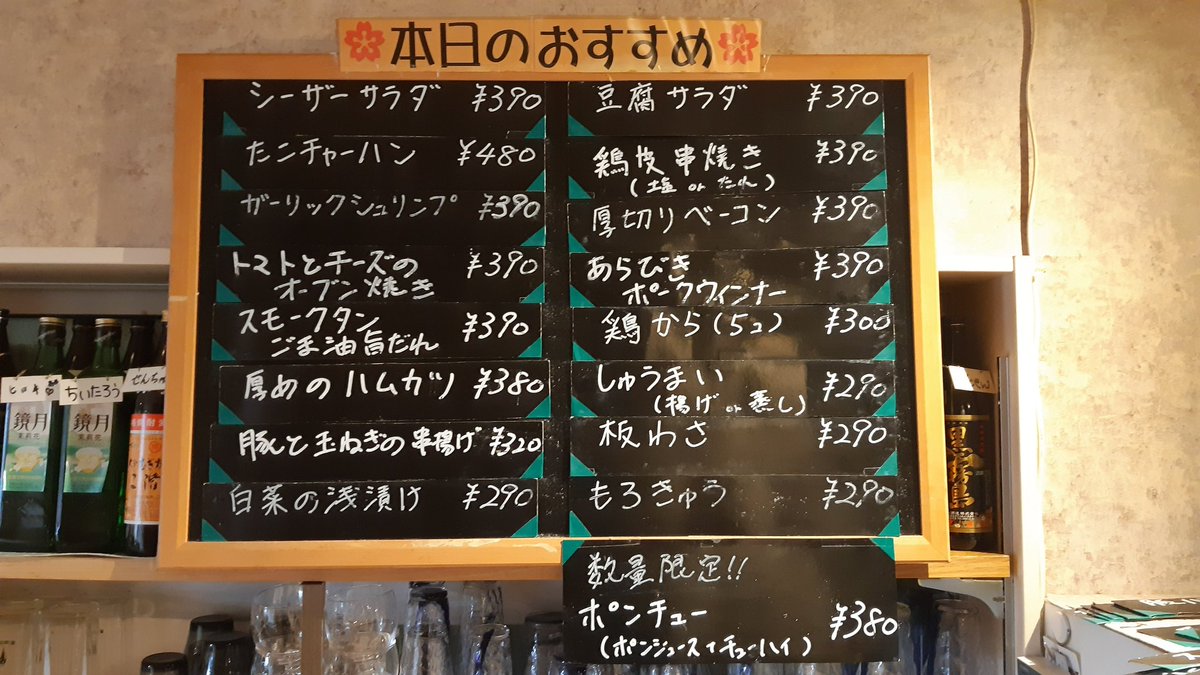 本日のおすすめ
シーザーサラダ ¥390
たこチャーハン ¥480
ガーリックシュリンプ ¥390
トマトとチーズの
オーブン焼き ¥390
スモークタン
ごま油旨だれ ¥390
厚めのハムカツ ¥380
豚しと玉ねぎの串揚げ ¥320
白菜の浅漬け ¥290
豆腐サラダ ¥390
鶏皮串焼き ¥390
(塩 or たれ)
厚切りベーコン ¥390
あらびき
ポークウィンナー ¥390
鶏から(5コ) ¥300
しゅうまい ¥290
(揚げ or 蒸し)
板わさ ¥290
もろきゅう ¥290
数量限定!!
ポンチュー ¥380
(ポンジュース+チューハイ)
ちいたろう
鏡月
茉莉花
鏡月
茉莉花
黒霧島